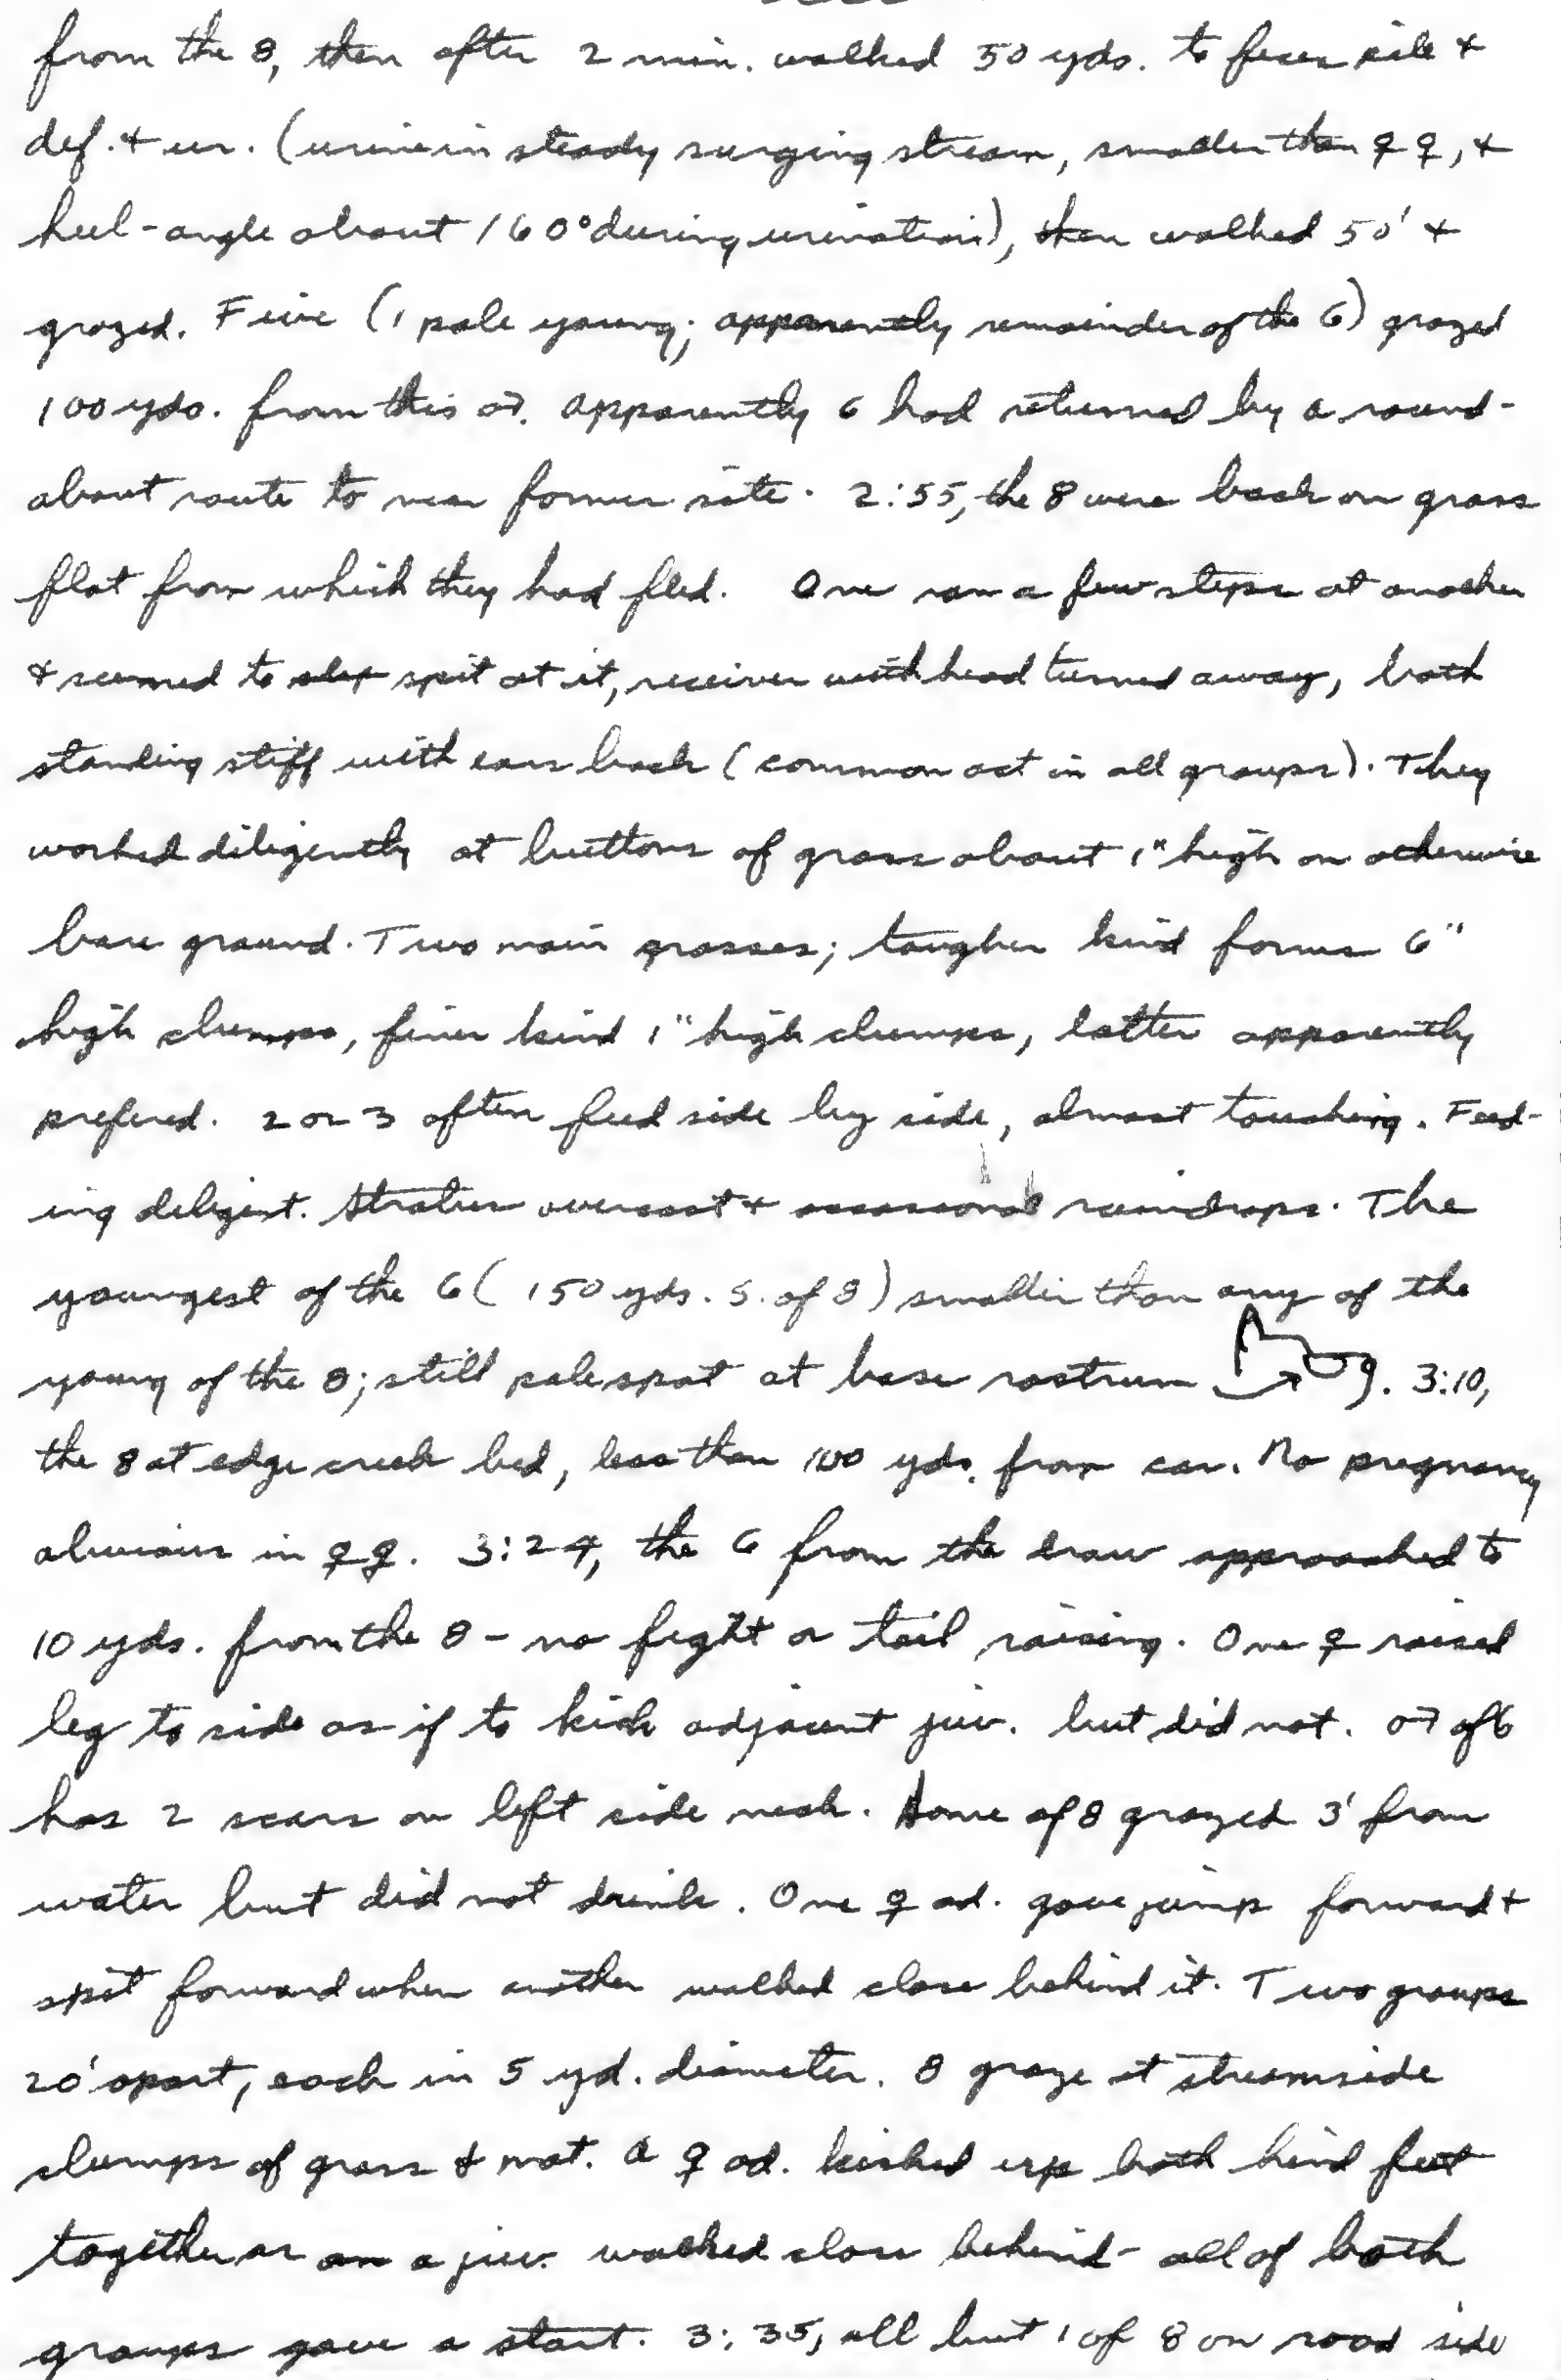 from the 8, then after 2 min. walked 50 yds. to feces pile +
def. + ur. (urine in steady surging stream, smaller than ♀♀, +
heel-angle about 160° during urination), then walked 50' +
grazed. Five (1 pale young; apparently remainder of the 6) grazed
100 yds. from this ♂. Apparently 6 had returned by a round-
about route to near former site. 2:55, the 8 were back on grass
flat from which they had fled. One ran a few steps at another
+ seemed to spit at it, receiver with head turned away, both
standing stiff with ears back (common act in all groups). They
worked diligently at buttons of grass about 1" high on otherwise
bare ground. Two main grasses; tougher kind forms 6"
high clumps, finer kind 1" high clumps, latter apparently
prefered. 2 or 3 often feed side by side, almost touching. Feed-
ing diligent. Stratus overcast + occasional raindrops. The
youngest of the 6 (150 yds. S. of 8) smaller than any of the
young of the 8; still pale spot at base rostrum. 3:10,
the 8 at edge creek bed, less than 100 yds. from car. No pregnancy
obvious in ♀♀. 3:24, the 6 from the draw approached to
10 yds. from the 8 - no fight or tail raising. One ♀ raised
leg to side as if to kick adjacent juv. but did not. ♂ of 6
has 2 scars on left side neck. Some of 8 grazed 3' from
water but did not drink. One ♀ ad. gave jump forward +
spit forward when another walked close behind it. Two groups
20' apart, each in 5 yd. diameter. 8 graze at streamside
clumps of grass & mat. A ♀ ad. kicked up both hind feet
together as a juv. walked close behind - all of both
groups gave a start. 3:35, all but 1 of 8 on road side